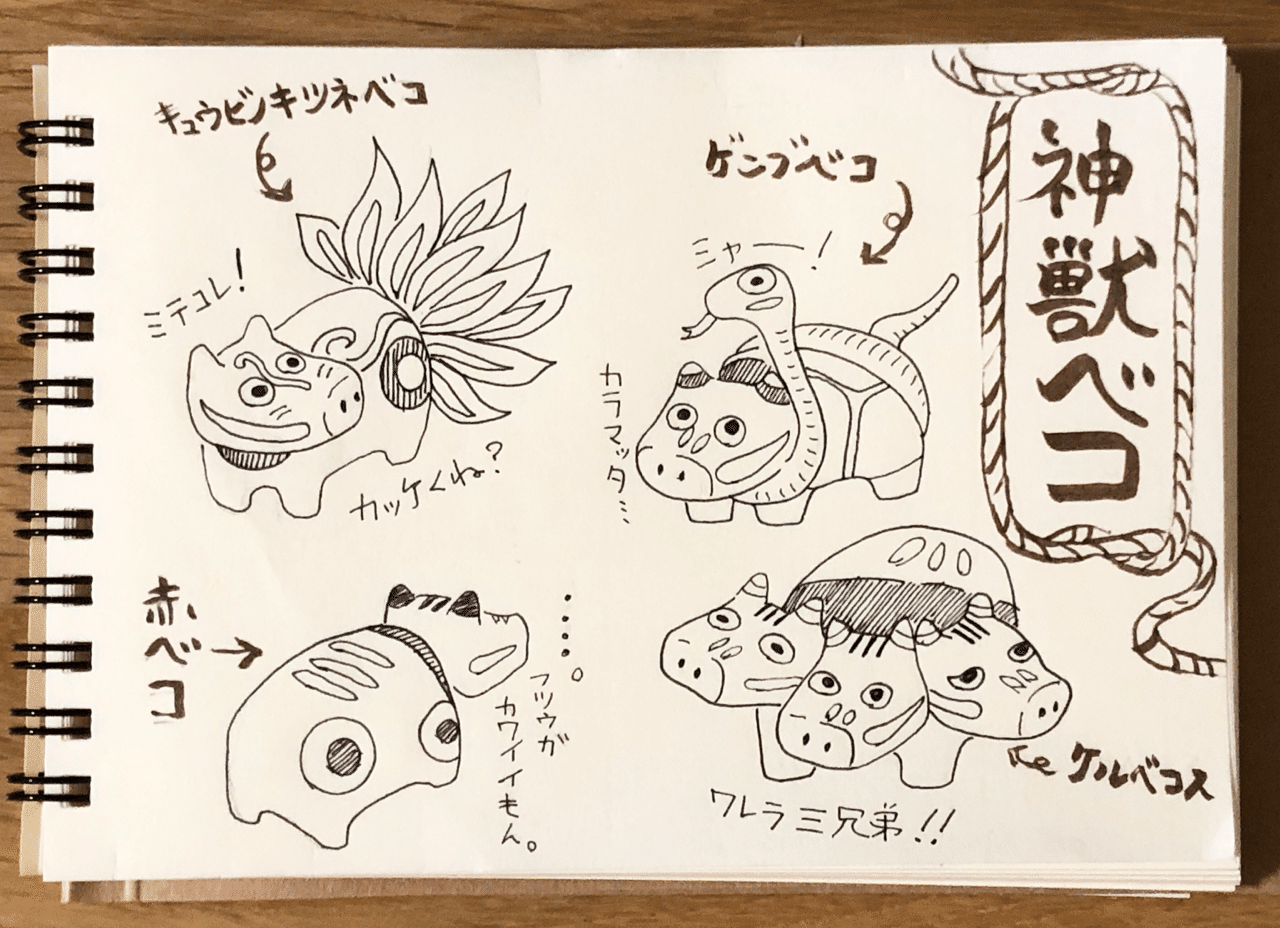 神獣ベコ
キュウビノキツネベコ
ミテコレ!
カッケくね?
ゲンブベコ
ミャー!
カラマッタ…
赤ベコ
……。
フツウガ
カワイイもん。
ケルベコス
ワレラ三兄弟!!